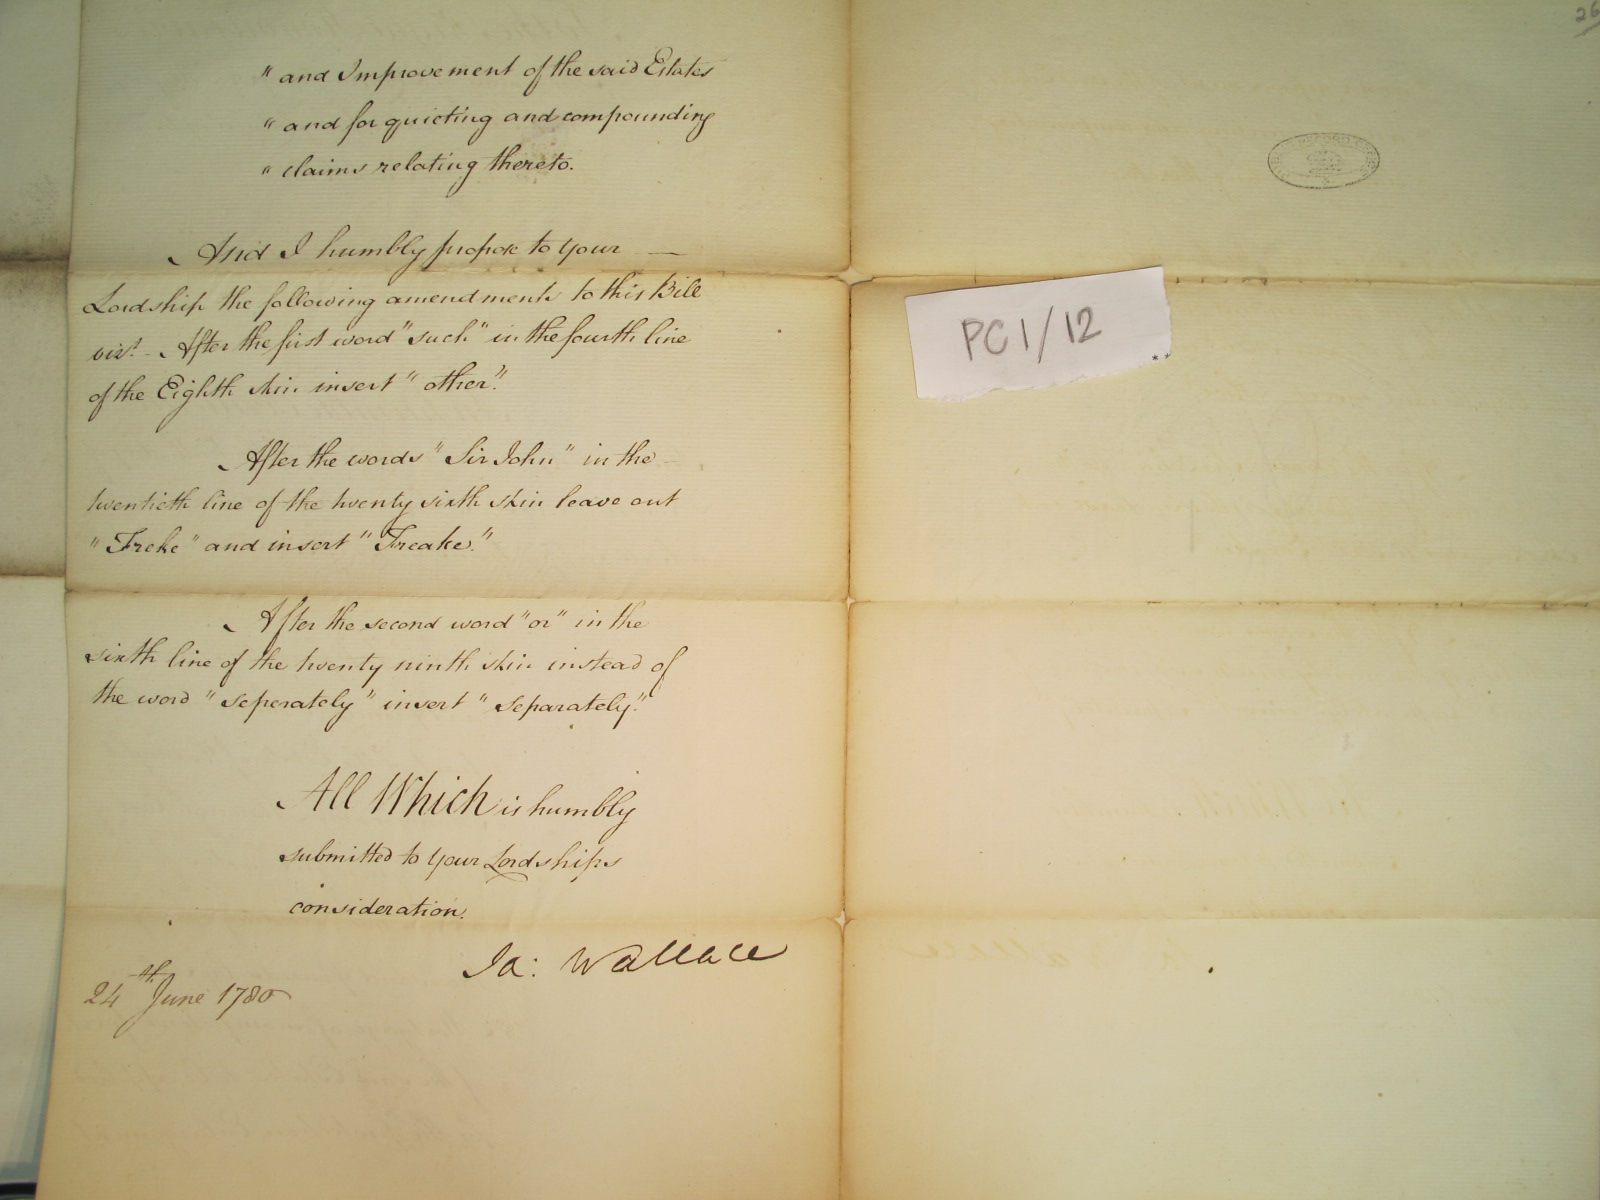 " and Improvement of the said Estates
" and for quieting and compounding
" claims relating thereto.
And I humbly propose to your —
Lordship the following amendments to this Bill
vizt. - After the first word "such" in the fourth line
of the Eighth skin insert "other".
After the words "Sir John" in the -
twentieth line of the twenty sixth skin leave out
"Freke" and insert "Freake."
After the second word "or" in the
sixth line of the twenty ninth skin instead of
the word "seperately" insert "separately."
All Which is humbly
submitted to your Lordships
consideration.
Ja: Wallace
24th June 1780
26
PC1/12